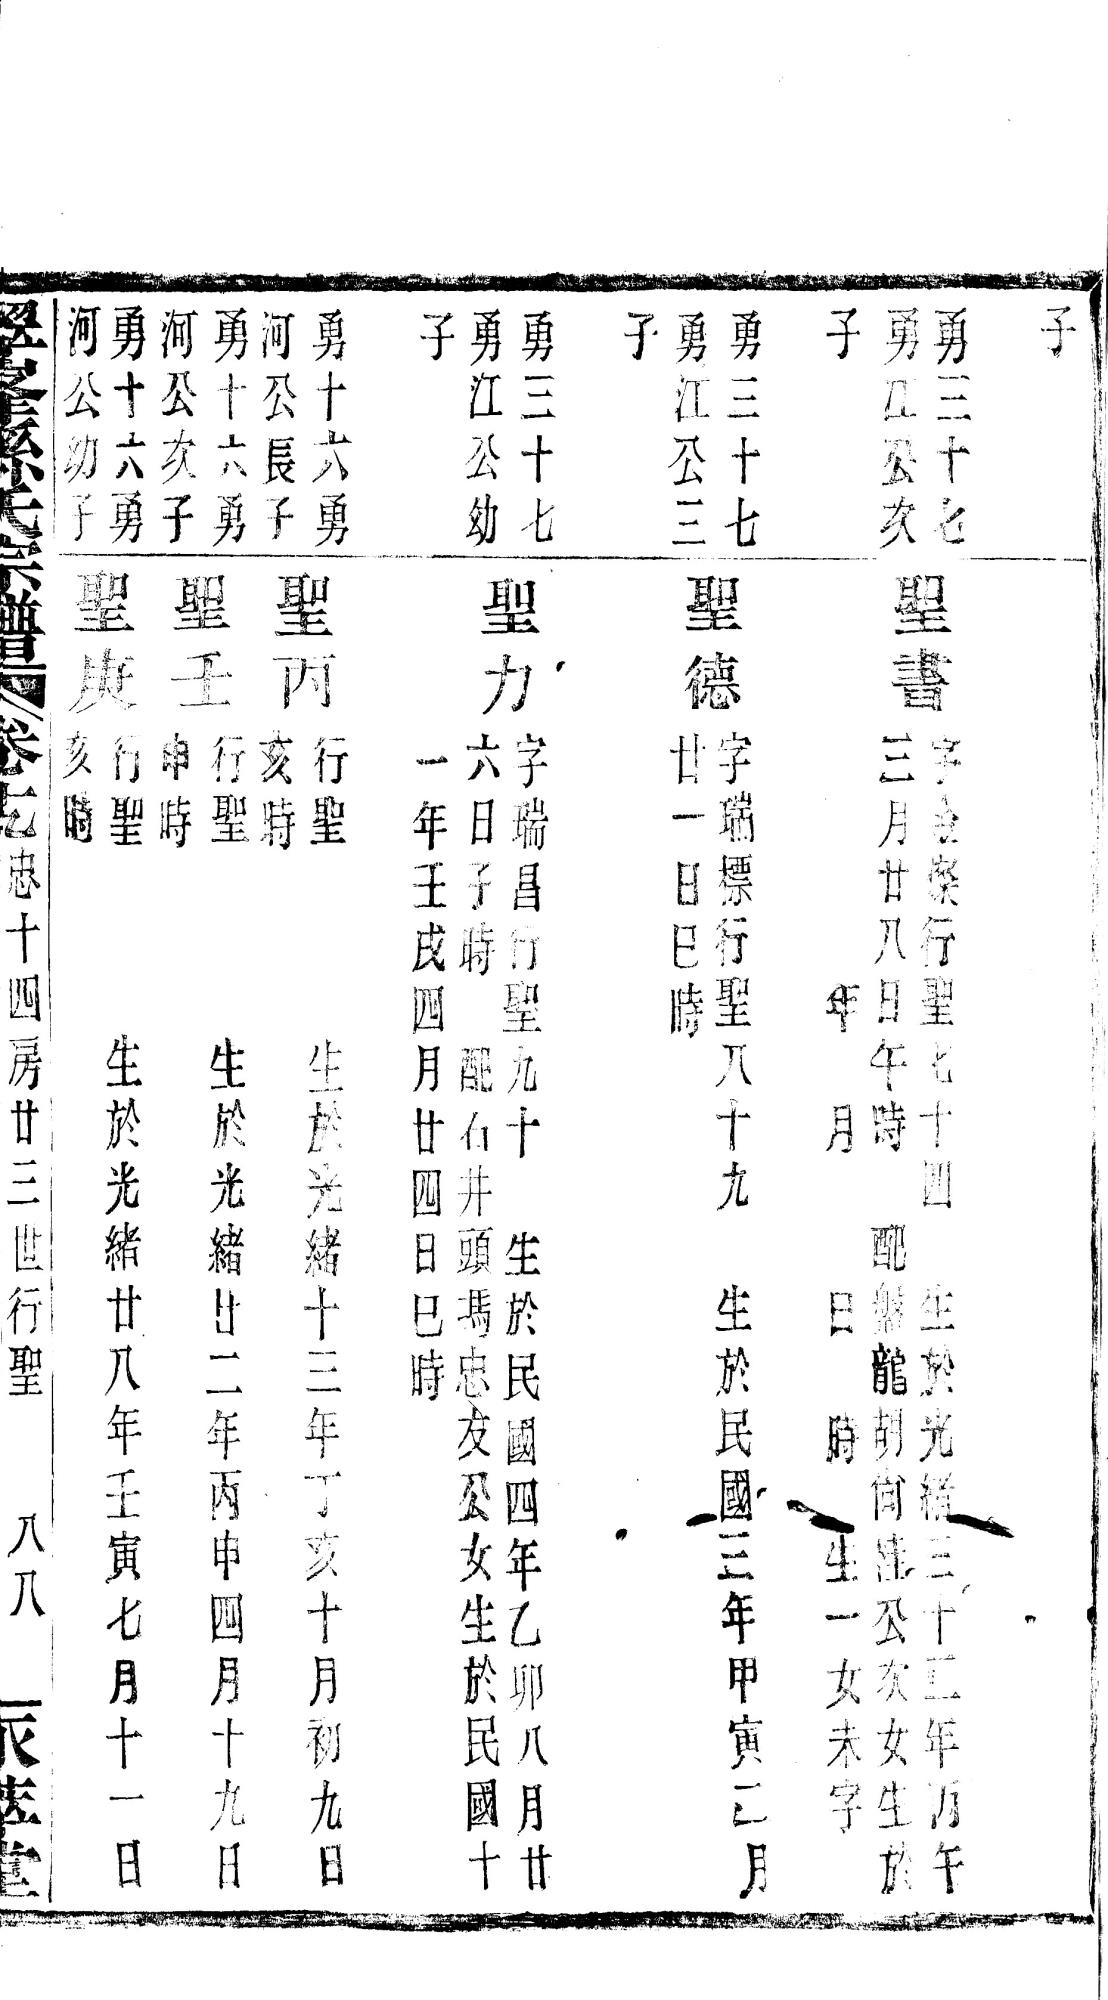 子
勇三十七
勇江公次
子
聖書
字金燦行聖七十四　生於光緒三十二年丙午
三月廿八日午時　配盤龍胡尚　公次女生於
年　月　日　時　生一女未字
勇三十七
勇江公三
子
聖德
字瑞標行聖八十九　生於民國三年甲寅二月
廿一日巳時
勇三十七
勇江公幼
子
聖力
字瑞昌行聖九十　生於民國四年乙卯八月廿
六日子時　配石井頭馮忠友公女生於民國十
一年壬戌四月廿四日巳時
勇十六勇
河公長子
聖丙
行聖　生於光緒十三年丁亥十月初九日
亥時
勇十六勇
河公次子
聖壬
行聖　生於光緒廿二年丙申四月十九日
申時
勇十六勇
河公幼子
聖庚
行聖　生於光緒廿八年壬寅七月十一日
亥時
孫氏宗譜　忠十四房廿三世行聖　八八　堂